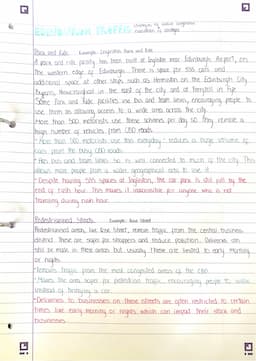 EDINBURGH TRAFFIC
Park and Ride Example: Ingliston Park and Ride
A park and ride facility has been built at Ingliston near Edinburgh Airport, on
the western edge of Edinburgh. There is space for 535 cars and
additional space at other sites such as Hermiston on the Edinburgh City
Bypass, Newcraighall in the east of the city and at Ferrytoll in Fife.
Some Park and Ride facilities use bus and tram lines, encouraging people to
use them as allowing access to a wide area across the city.
More than 500 motorists use these schemes per day so they remove a
huge number of vehicles from CBD roads.
More than 500 motorists use this everyday - reduces a huge volume of
cars from the busy CBD roads.
Has bus and tram lines so is well connected to much of the city. This
allows more people from a wider geographical area to use it.
Despite having 535 spaces at Ingliston, the car park is still full by the
end of rush hour. This makes it inaccessible for anyone who is not
travelling during rush hour.
Pedestrianised Streets Example: Rose Street
Pedestrianised areas, like Rose Street, remove traffic from the central business
district. These are safer for shoppers and reduce pollution. Deliveries can
still be made in these areas but usually these are limited to early morning
or nights.
Removes traffic from the most congested areas of the CBD.
Makes the area safer for pedestrian traffic, encouraging people to walk
instead of bringing a car.
Deliveries to businesses on these streets are often restricted to certain
times like early morning or nights which can impact their stock and
businesses.